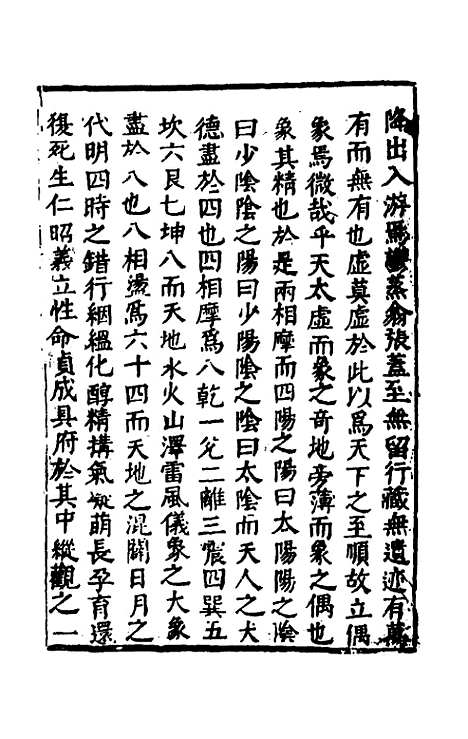 降出入游焉鬱蒸翕張蓋至無留行藏無遺迹有萬
有而無有也虛莫虛於此以爲天下之至順故立偶
象爲微哉乎天太虛而象之奇地旁薄而象之偶也
象其精也於是兩相摩而四陽之陽曰太陽陽之陰
曰少陰陰之陽曰少陽陰之陰曰太陰而天人之大
德盡於四也四相摩爲八乾一兊二離三震四巽五
坎六艮七坤八而天地水火山澤雷風儀象之大象
盡於八也八相盪爲六十四而天地之混闢日月之
代明四時之錯行絪縕化醇精搆氣凝萌長孕育還
復死生仁昭義立性命貞成具府於其中縱觀之一